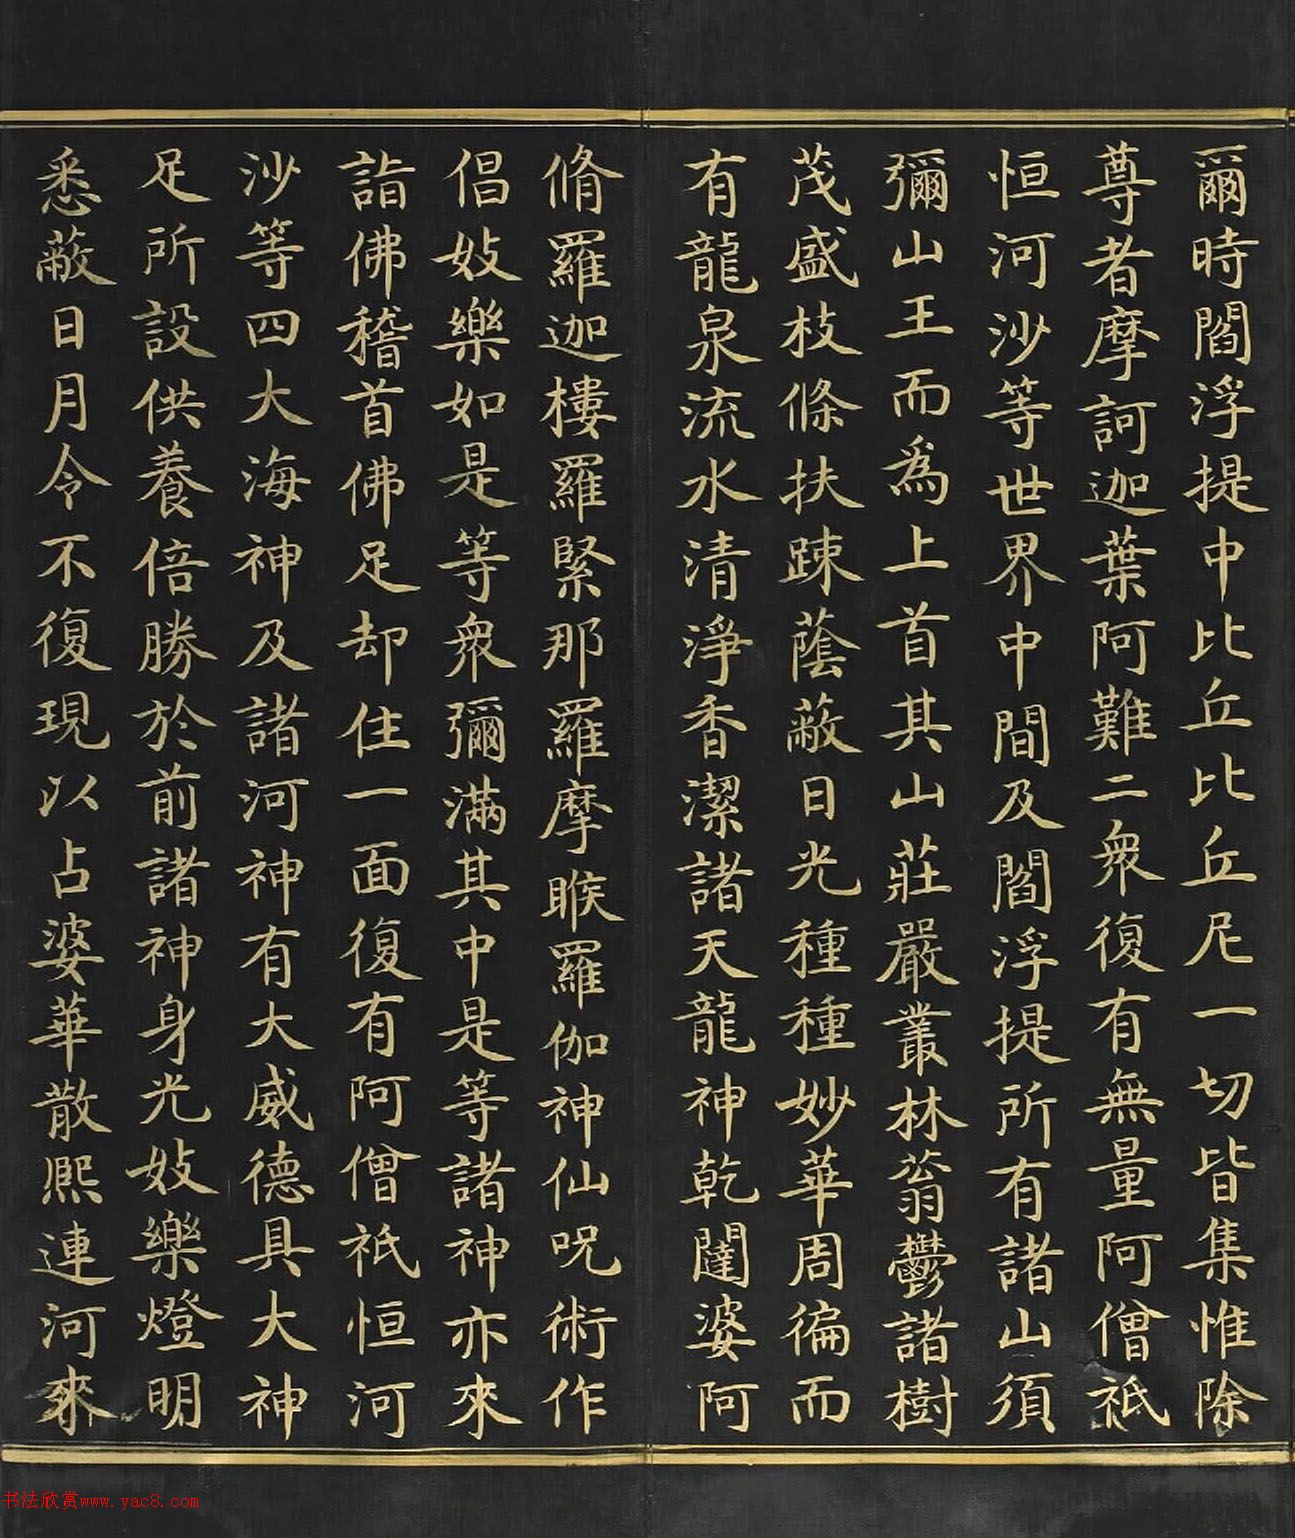 爾時閻浮提中比丘比丘尼一切皆集惟除
尊者摩訶迦葉阿難二衆復有無量阿僧祇
恒河沙等世界中間及閻浮提所有諸山須
彌山王而為上首其山莊嚴叢林蓊鬱諸樹
茂盛枝條扶踈蔭蔽日光種種妙華周徧而
有龍泉流水清淨香潔諸天龍神乾闥婆阿
脩羅迦樓羅緊那羅摩睺羅伽神仙呪術作
倡妓樂如是等衆彌滿其中是等諸神亦來
詣佛稽首佛足却住一面復有阿僧祇恒河
沙等四大海神及諸河神有大威德具大神
足所設供養倍勝於前諸神身光妓樂燈明
悉蔽日月令不復現以占婆華散熙連河來
书法欣赏www.yac8.com